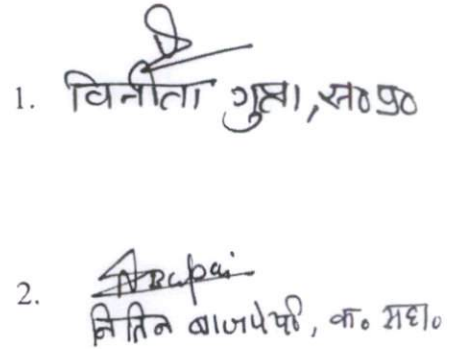 1. विनीता गुप्ता, स०प्र०
2. नितिन बाजपेयी, क० सहा०